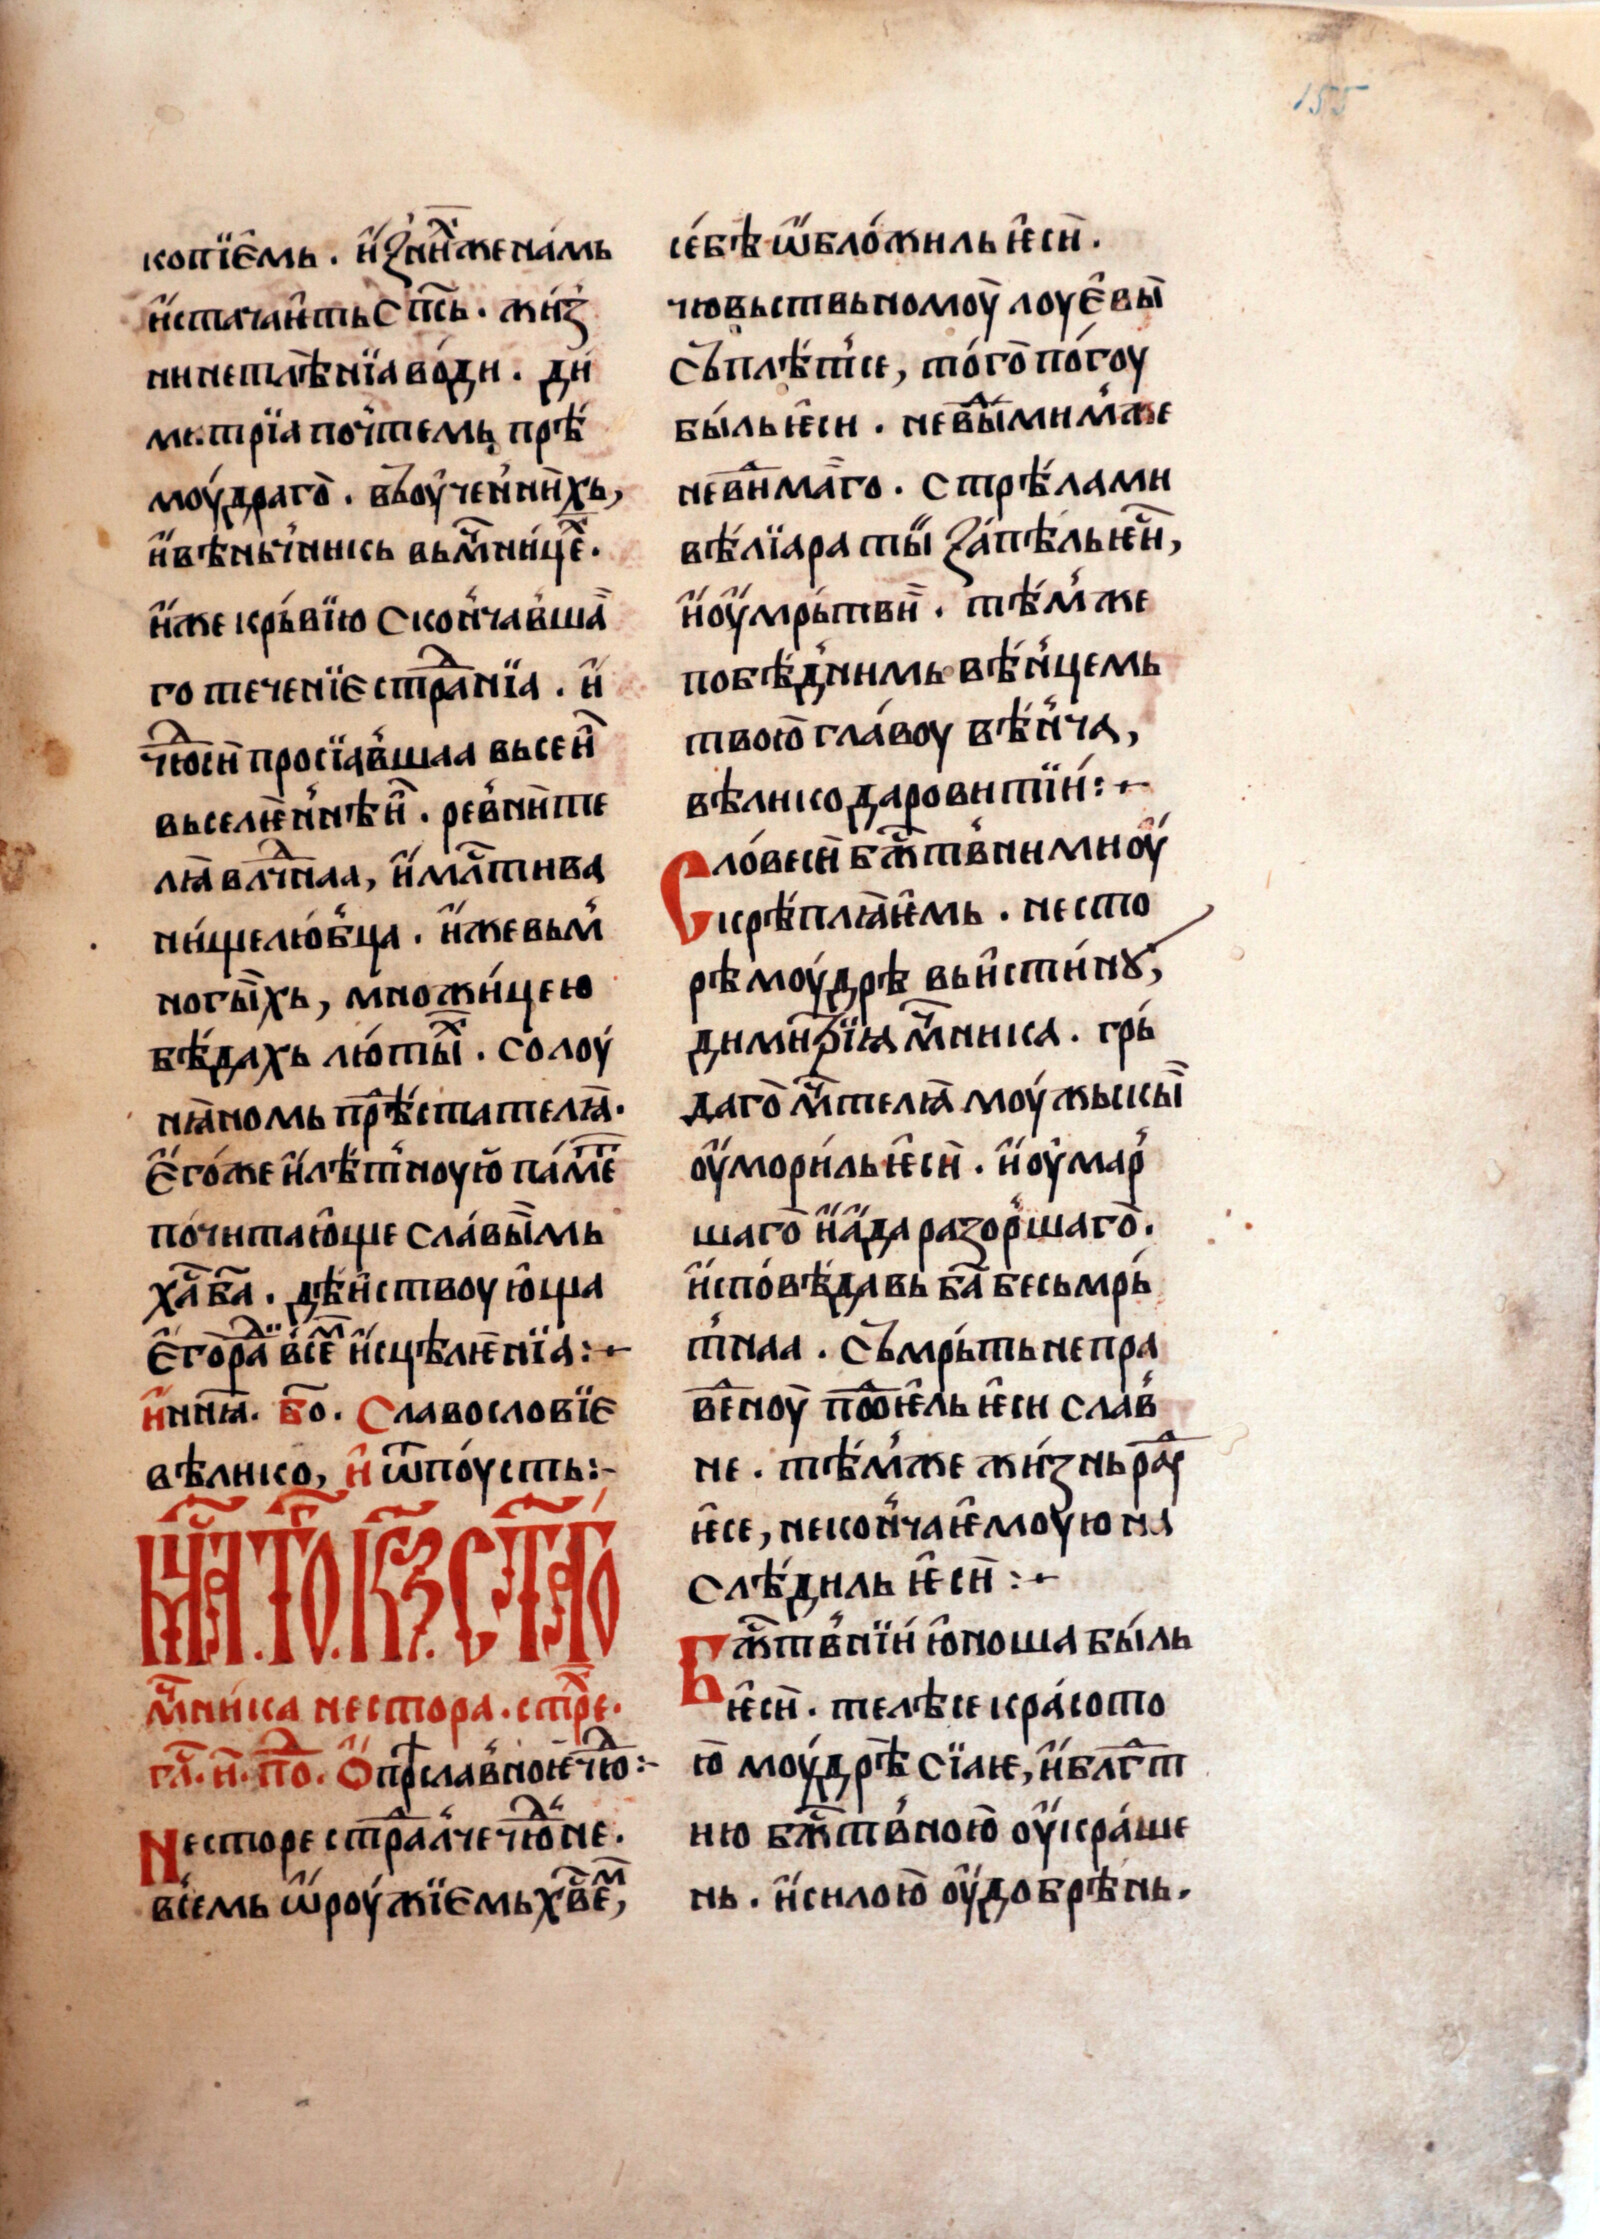 155
копїе̑мь . и҆ з ни́хже на́мь
и҆стачаи҆ть с пс҃ь . жи́з
ни нетлѣ́нїа во́ди . ди
митрїа поч̾темь прѣ
моу́драго . въ оу҆чен̾ни́хь,
и҆ вѣньч̾никь вь мн҃ице́х .
и҆же крь́вїю скон̾чав̾ша
го теченїе страд̾нїа . и҆
чюдеси̑ просїав̾шаа вь сеи̑
вьселѥн̾нѣи̑ . рев̾ни̑те
лꙗ влⷣчнаа, и҆ млⷭ҇тива
ни́щелю́б̾ца . и҆же вь м̾
ногы́хь, множи́цею
бѣ́дахь лю́тыⷯ . солоу́
нꙗномь прѣ́стателꙗ .
е҆го́же и҆ лѣ́т̾ноую па́меⷮ
почита́ю҆ще сла́вы̑мь
хⷭ҇а ба҃ . дѣ́иствоую҆ща
е҆го раⷣ всѣⷨ и҆сцѣлѥнїа :~
и҆ нин҃ꙗ . бо҃ . Славословїе
вѣлико, и҆ ѿпоу́сть :~
Мцⷭ҇а то кз ст҃го
мч҃ни́ка нестора . стⷯре .
гл҃ . и҃ . поⷣ . Ѽ прⷣслав̾ноѥ чюⷣ :~
Несторе страдал̾че чюⷣне .
всѣмь ѡ҆роу́жїемь хв҃ѣⷨ,
се́бѣ ѡ҆бло́жиль ѥ҆си̑ .
чювьствьномоу̑ лоуе҆вы̑
съплѣ́т̾се, то́го по́гоу
бы́ль ѥ҆си . невⷣиⷨми́м̾же
невⷣи́маго . стрѣ́лами
вѣ́лїара ты̑ за́пѣль ѥ҆ⷭи̑,
и҆ оу҆мрь́тви̑ . тѣ́м̾же
побѣ́д̾нимь вѣ́н̾цемь
твою̑ гла́воу вѣ́н̾ча,
вѣлико даровитїи́ :~
Сло́веси̑ бжⷭ҇тв̾ними оу҆
крѣ́плꙗѥ҆мь . несто
рѣ моу́дрѣ вь и҆сти́нꙋ,
димитрїꙗ мч҃ника . грь́
даго мч҃телꙗ моу́жьскы̑
оу҆мори́ль ѥ҆си̑ . и҆ оу҆мар̾
шаго и҆ а҆да разор̾шаго .
и҆спо́вѣ́давь ба҃ бесьмрь́
т̾наа . съмрь́ть непра
веⷣноу̑ поⷣѥ҆ль ѥ҆си слав̾
не . тѣ́м̾же жи́знь раⷣꙋ
ѥ҆се, нескон̾чаѥ҆моую на
слѣ́диль ѥ҆си̑ :~
Бжⷭ҇тв̾нїи́ ю҆ноша бы́ль
ѥ҆си̑ . телѣсе кра́сото
ю̑ моу́дрѣ сїаѥ, и҆ блгⷣт
ию бжⷭ҇тв̾ною̑ оу҆кра́ше
нь . и҆ силою̑ оу҆добрѣ́нь .